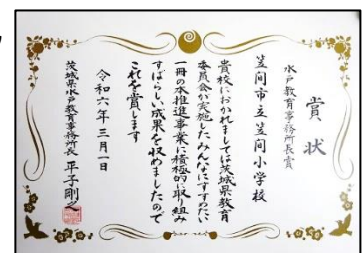 賞状
水戸教育事務所長賞
笠間市立笠間小学校
貴校におかれましては茨城県教育
委員会が実施したみんなにすすめたい
一冊の本推進事業に積極的に取り組み
すばらしい成果を収めましたので
これを賞します
令和六年三月一日
茨城県水戸教育事務所長 平子剛之